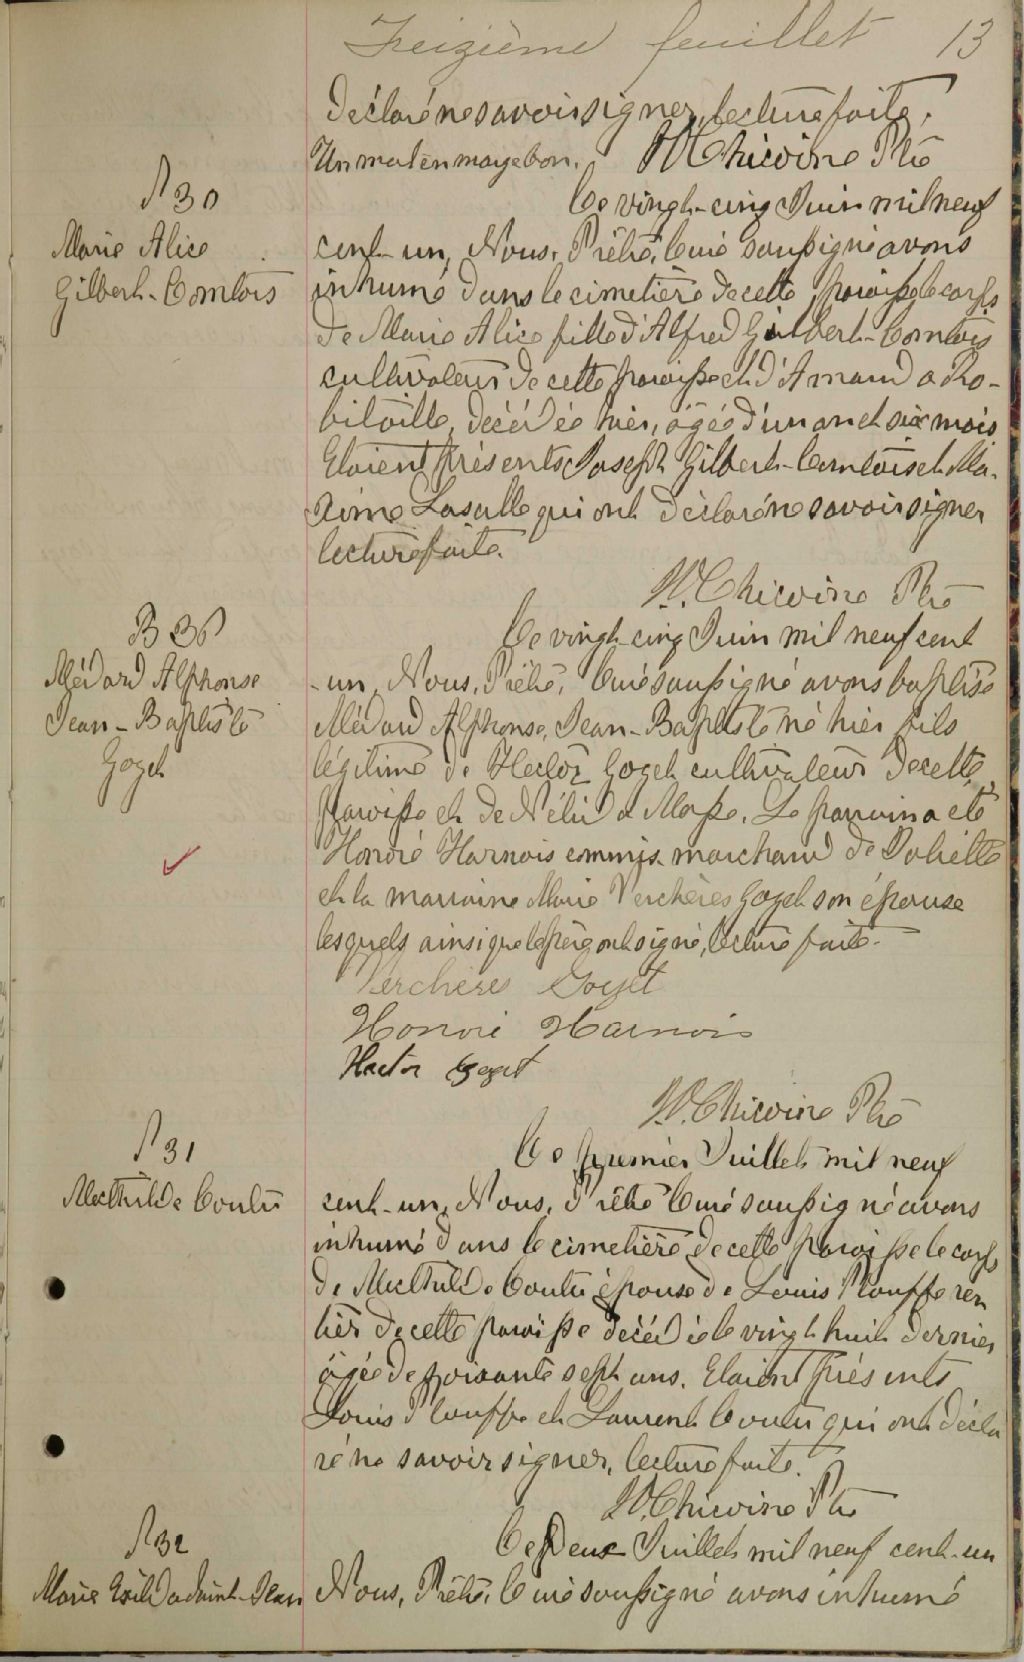 Treizième feuillet 13
déclaré ne savoir signer, lecture faite.
Un mot en marge bon. Ptre
S 30
Marie Alice
Gilbert-Comtois
Ce vingt-cinq Juin mil neuf
cent-un, Nous, Prêtre, Curé soussigné avons
inhumé dans le cimetière de cette paroisse le corps
de Marie Alice fille d'Alfred Gilbert-Comtois
cultivateur de cette paroisse et d'Amanda Ro-
bitaille, décédée hier, âgée d'un an et six mois
Etaient présents Joseph Gilbert-Comtois et Ma-
xime Lasalle qui ont déclaré ne savoir signer
lecture faite.
Ptre
B 36
Médard Alphonse
Jean-Baptiste
Goyet
Ce vingt-cinq Juin mil neuf cent
-un, Nous, Prêtre, Curé soussigné avons baptisé
Médard Alphonse, Jean-Baptiste né hier fils
légitime de Hector Goyet cultivateur de cette
paroisse et de Nélida Masse. Le parrain a été
Honoré Harnois commis marchand de Joliette
et la marraine Marie Verchères Goyet son épouse
lesquels ainsi que le père ont signé, lecture faite.
Verchères Goyet
Honoré Harnois
Hector Goyet
Ptre
S 31
Mathilde Coutu
Ce premier Juillet mil neuf
cent-un, Nous, Prêtre Curé soussigné avons
inhumé dans le cimetière de cette paroisse le corps
de Mathilde Coutu épouse de Louis Plouffe ren
tier de cette paroisse décédée le vingt huit dernier
âgée de soixante sept ans. Etaient présents
Louis Plouffe et Laurent Coutu qui ont décla
ré ne savoir signer, lecture faite.
Ptre
S 32
Marie Exilda Saint-Jean
Ce deux Juillet mil neuf cent-un
Nous, Prêtre, Curé soussigné avons inhumé